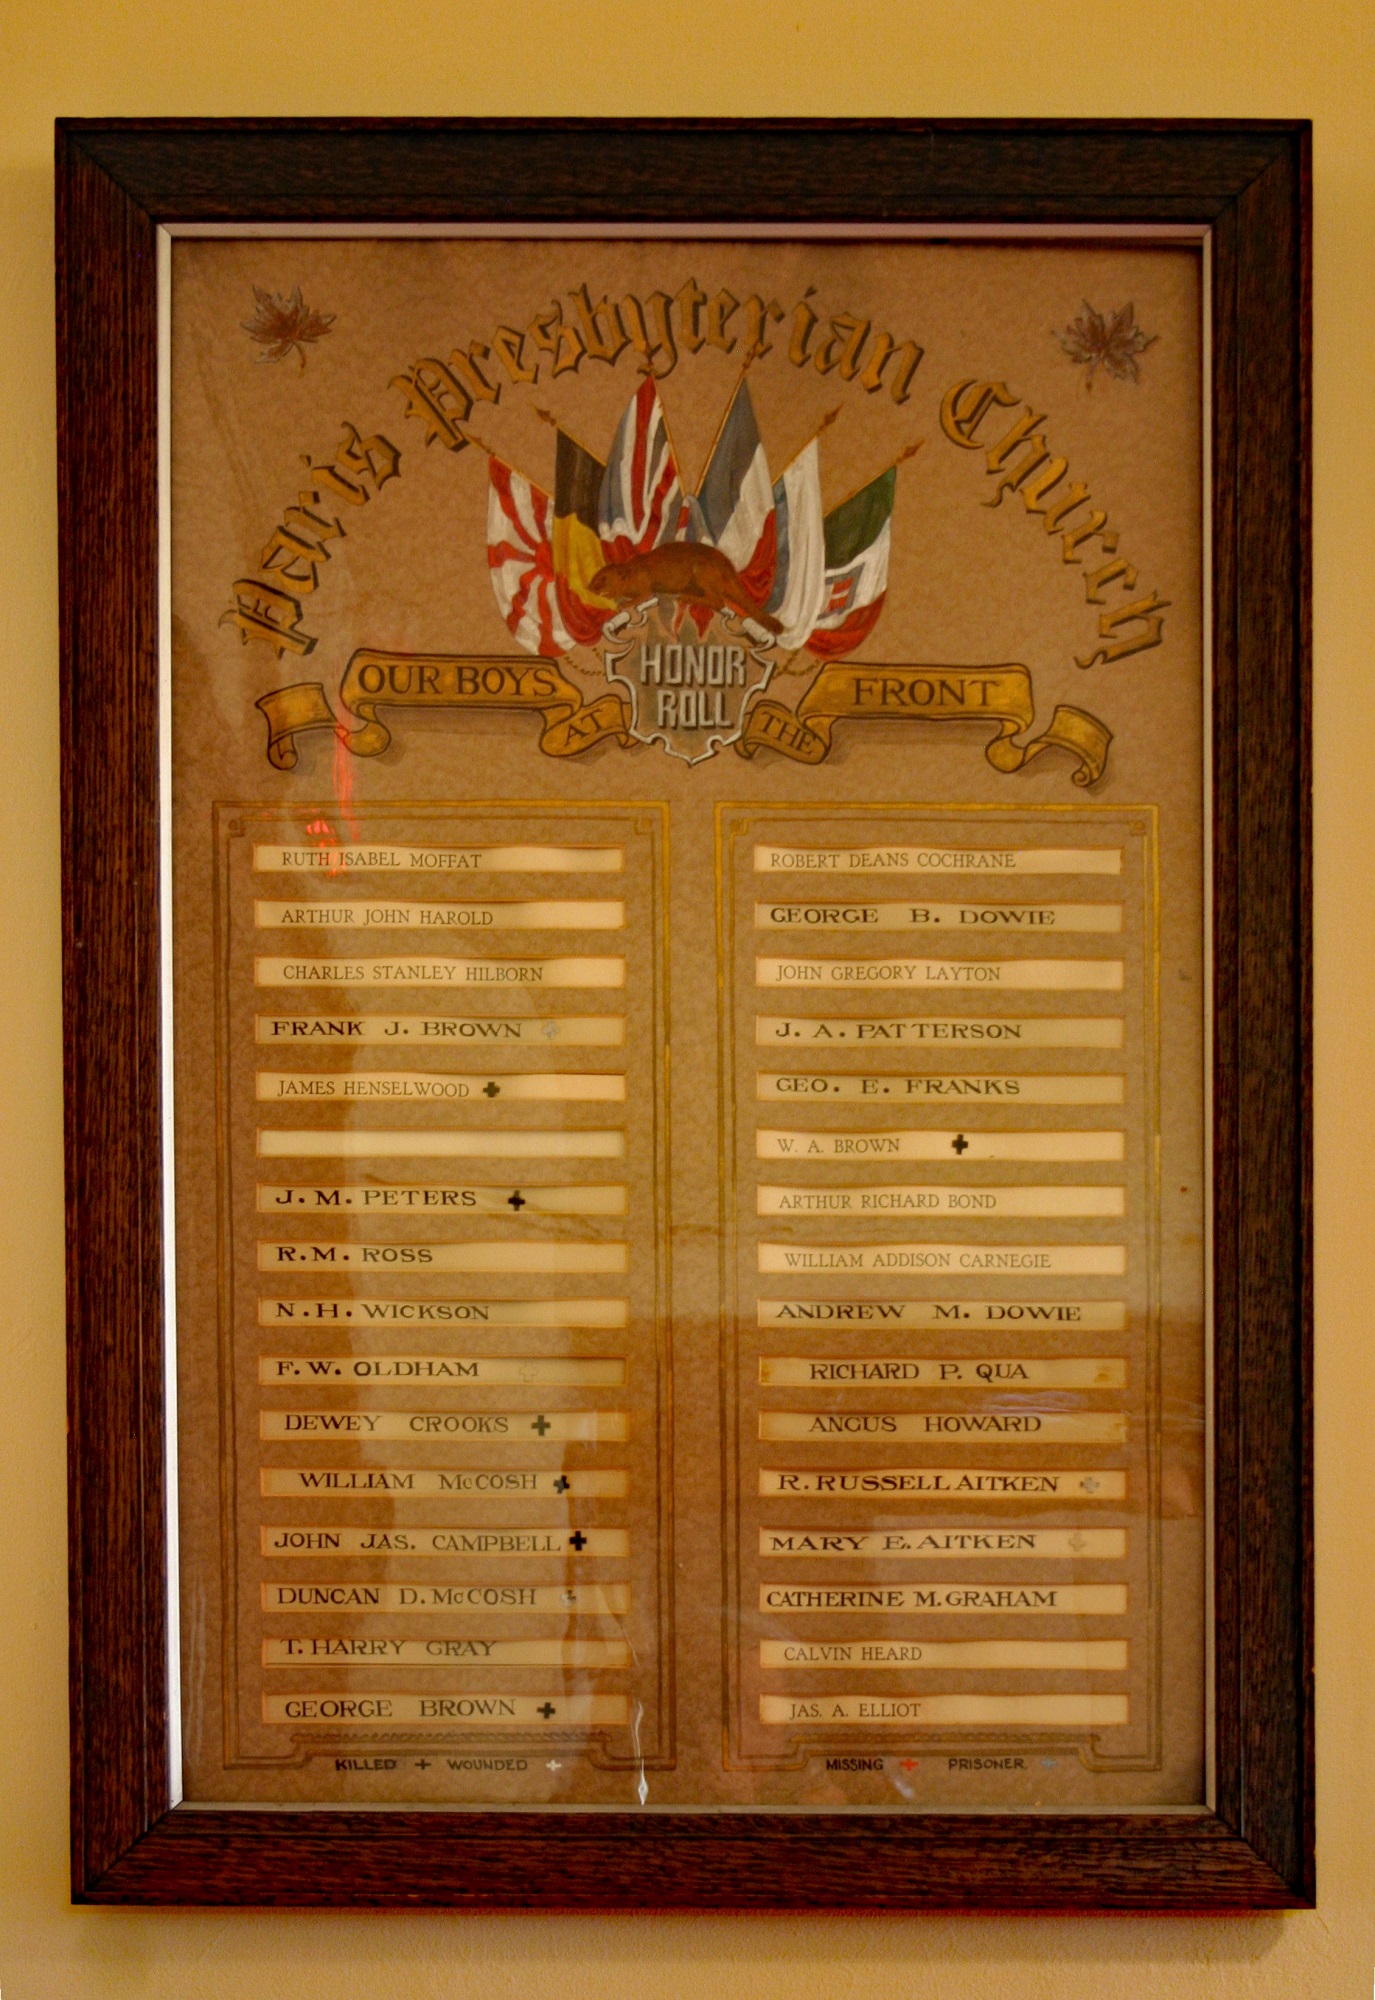 Paris Presbyterian Church
HONOR
ROLL
OUR BOYS AT THE FRONT
RUTH ISABEL MOFFAT
ARTHUR JOHN HAROLD
CHARLES STANLEY HILBORN
FRANK J. BROWN
JAMES HENSELWOOD
J. M. PETERS
R. M. ROSS
N. H. WICKSON
F. W. OLDHAM
DEWEY CROOKS
WILLIAM McCOSH
JOHN JAS. CAMPBELL
DUNCAN D. McCOSH
T. HARRY GRAY
GEORGE BROWN
KILLED + WOUNDED +
ROBERT DEANS COCHRANE
GEORGE B. DOWIE
JOHN GREGORY LAYTON
J. A. PATTERSON
GEO. E. FRANKS
W. A. BROWN
ARTHUR RICHARD BOND
WILLIAM ADDISON CARNEGIE
ANDREW M. DOWIE
RICHARD P. QUA
ANGUS HOWARD
R. RUSSELL AITKEN
MARY E. AITKEN
CATHERINE M. GRAHAM
CALVIN HEARD
JAS. A. ELLIOT
MISSING + PRISONER +